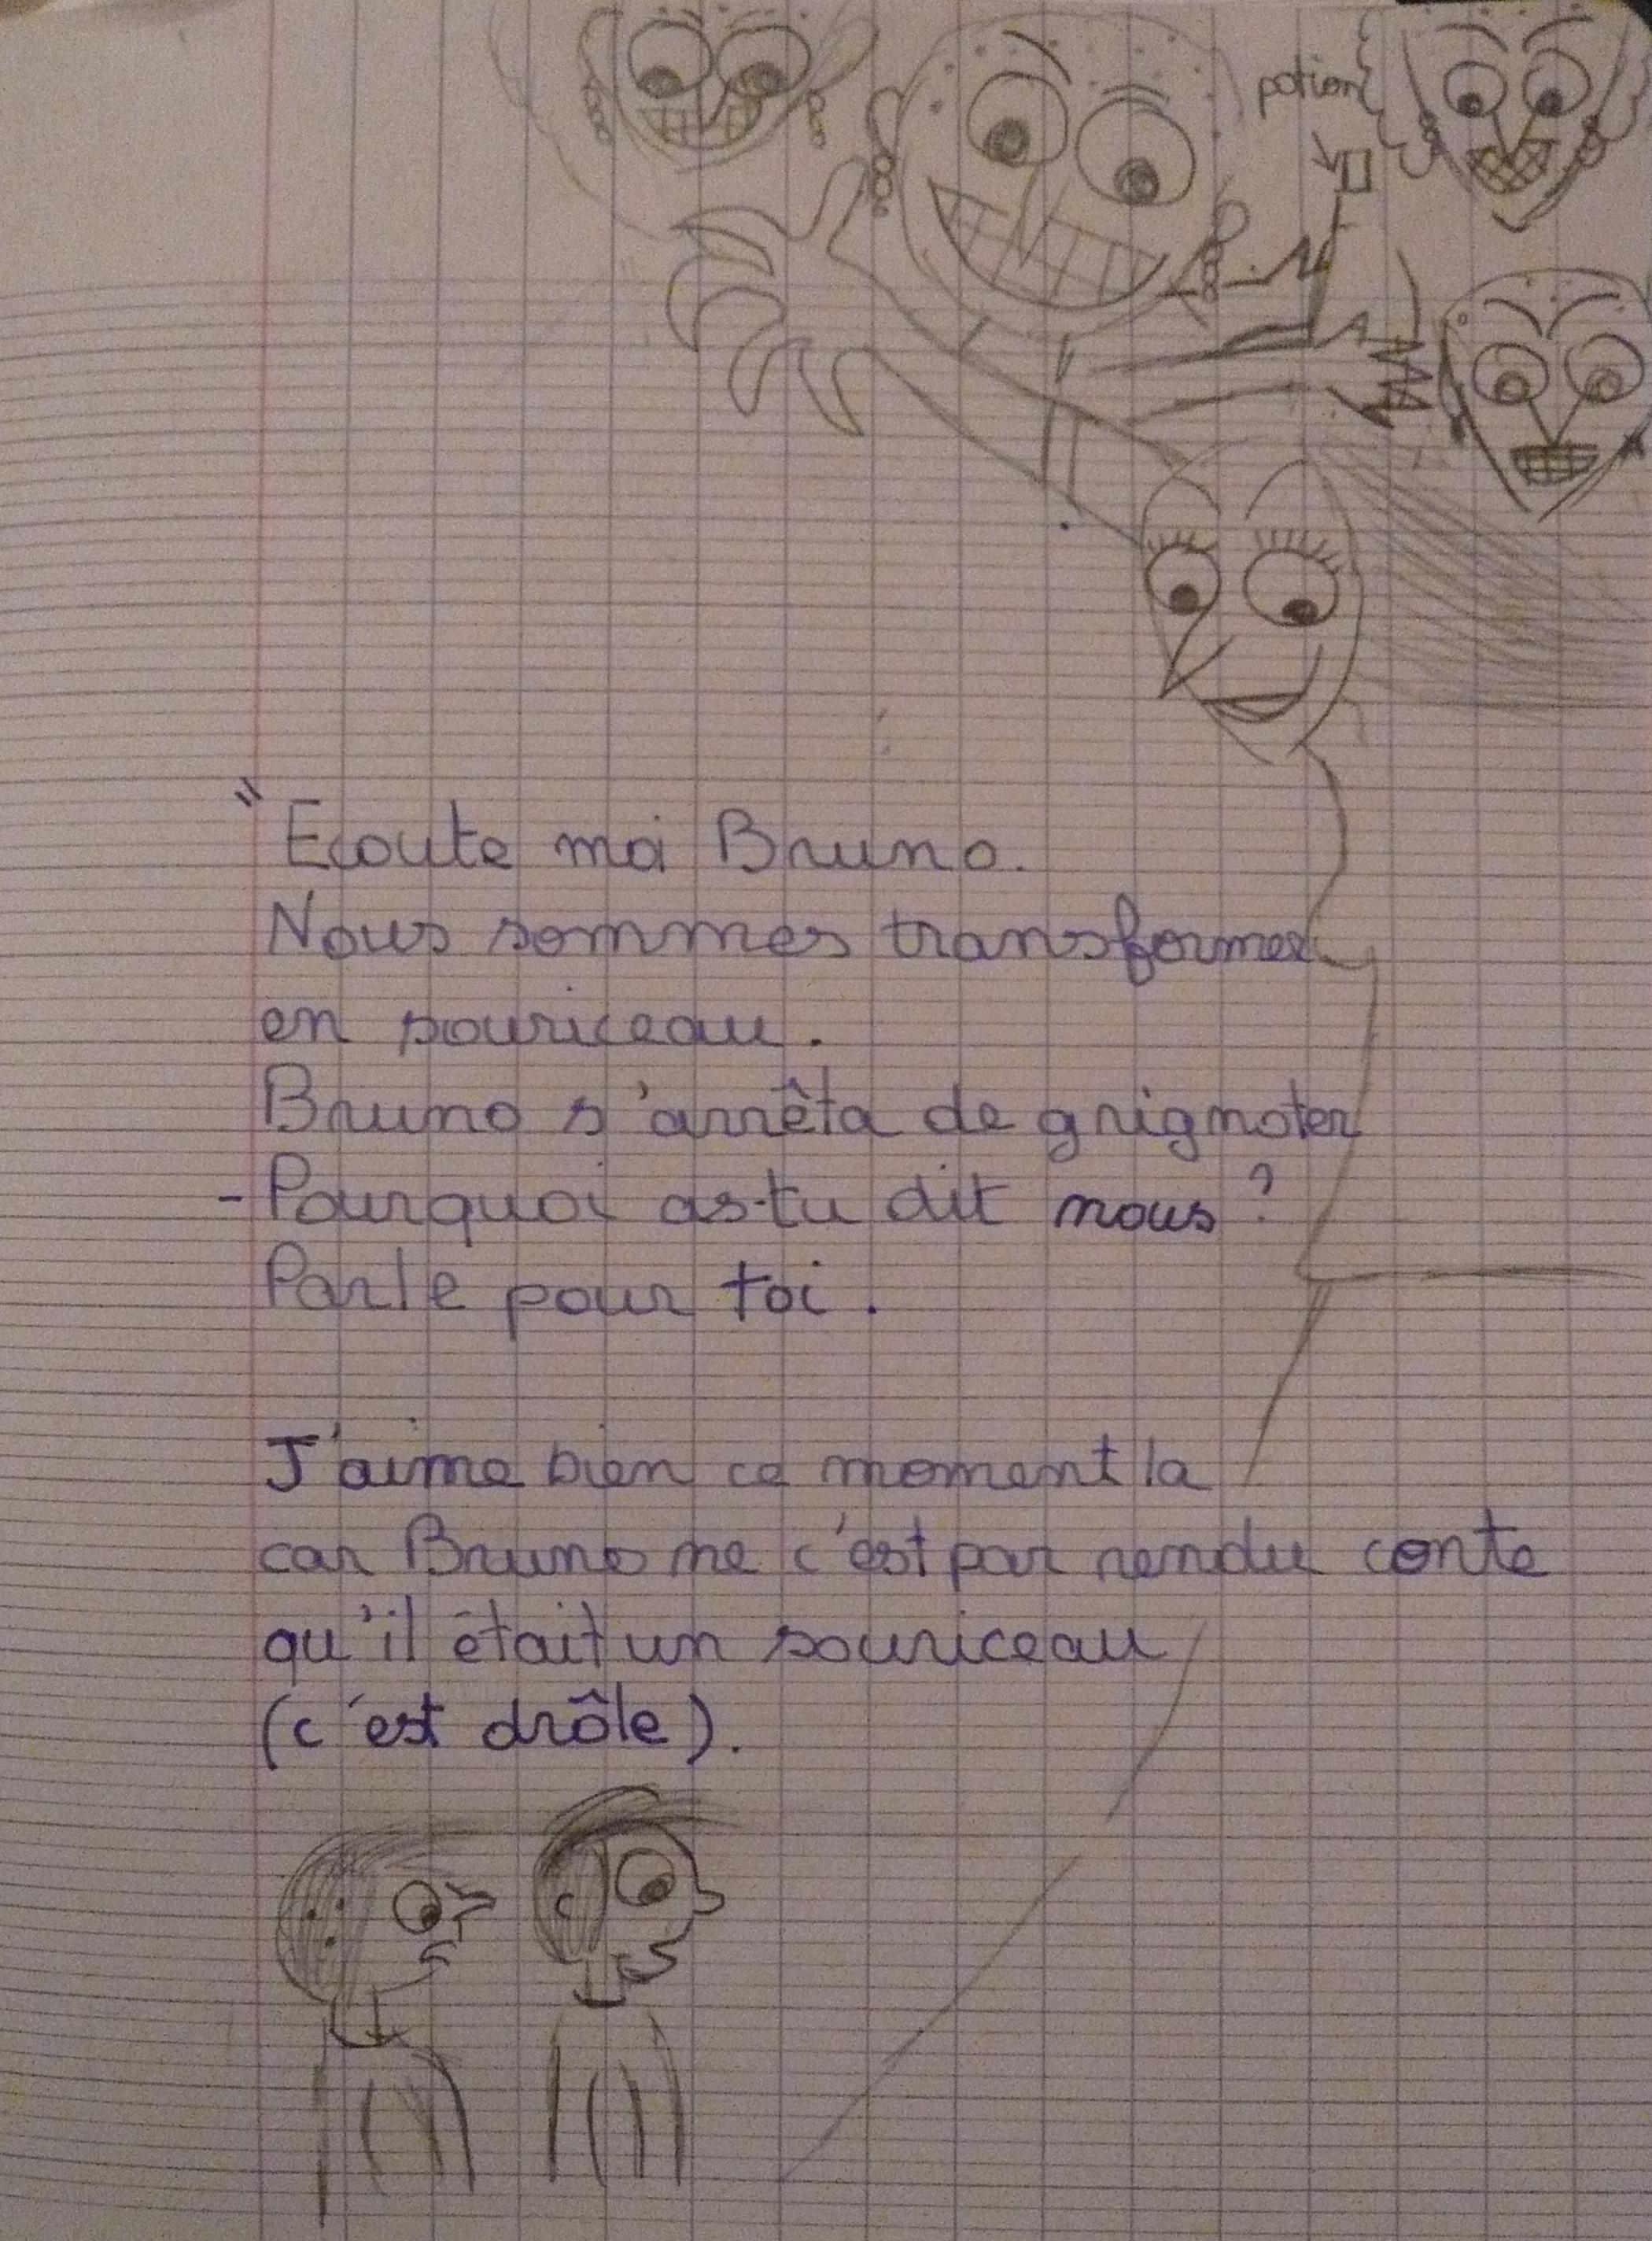 potion
"Ecoute moi Bruno.
Nous sommes transformer
en souriceau.
Bruno s'arrêta de grignoter
- Pourquoi as-tu dit nous ?
Parle pour toi.
J'aime bien ce moment la
car Bruno ne c'est par rendu conte
qu'il était un souriceau
(c'est drôle).